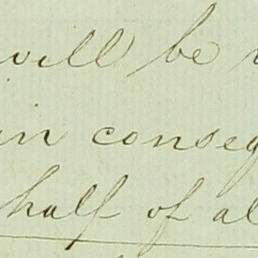 will be
in conseq
half of al